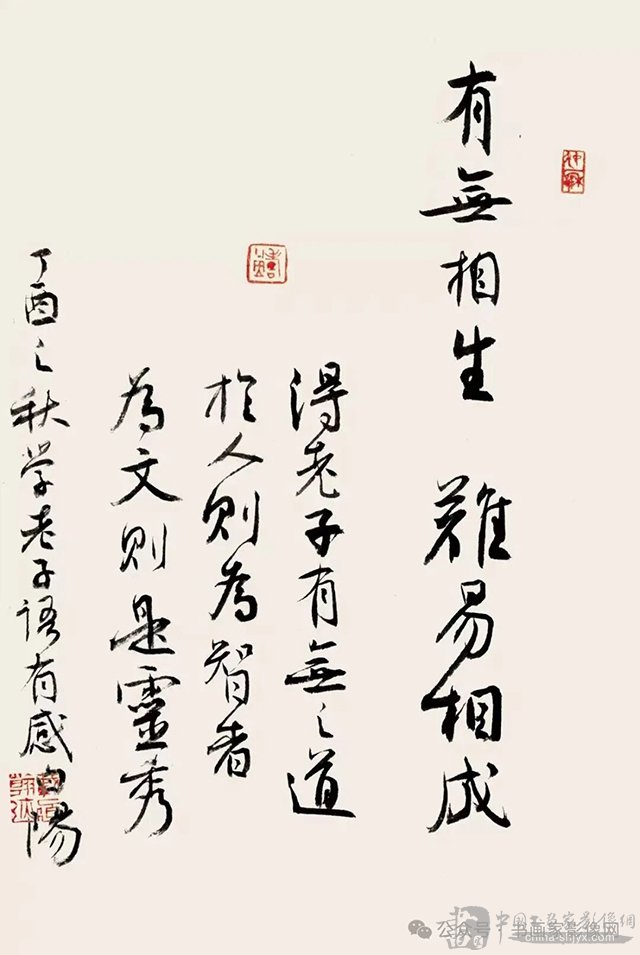 有無相生 難易相成
得老子有無之道
於人則為智者
為文則是靈秀
丁酉之秋学老子語有感 白陽
公众号·书画家影像网
china-shjyx.com